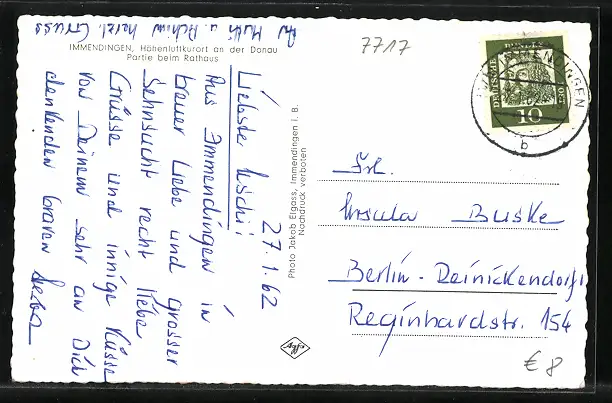 An Mutti u. Achim herzl. Gruss
IMMENDINGEN, Höhenluftkurort an der Donau
Partie beim Rathaus
27.1.62
Liebste Uschi!
Aus Immendingen in
treuer Liebe und grosser
Sehnsucht recht liebe
Grüsse und innige Küsse
von Deinem sehr an Dich
denkenden braven
Photo Jakob Elgass, Immendingen i. B.
Nachdruck verboten
7717
DEUTSCHE BUNDESPOST
10
IMMENDINGEN
b
Frl.
Ursula Buske
Berlin-Reinickendorf 1
Reginhardstr. 154
Agfa
€ 8